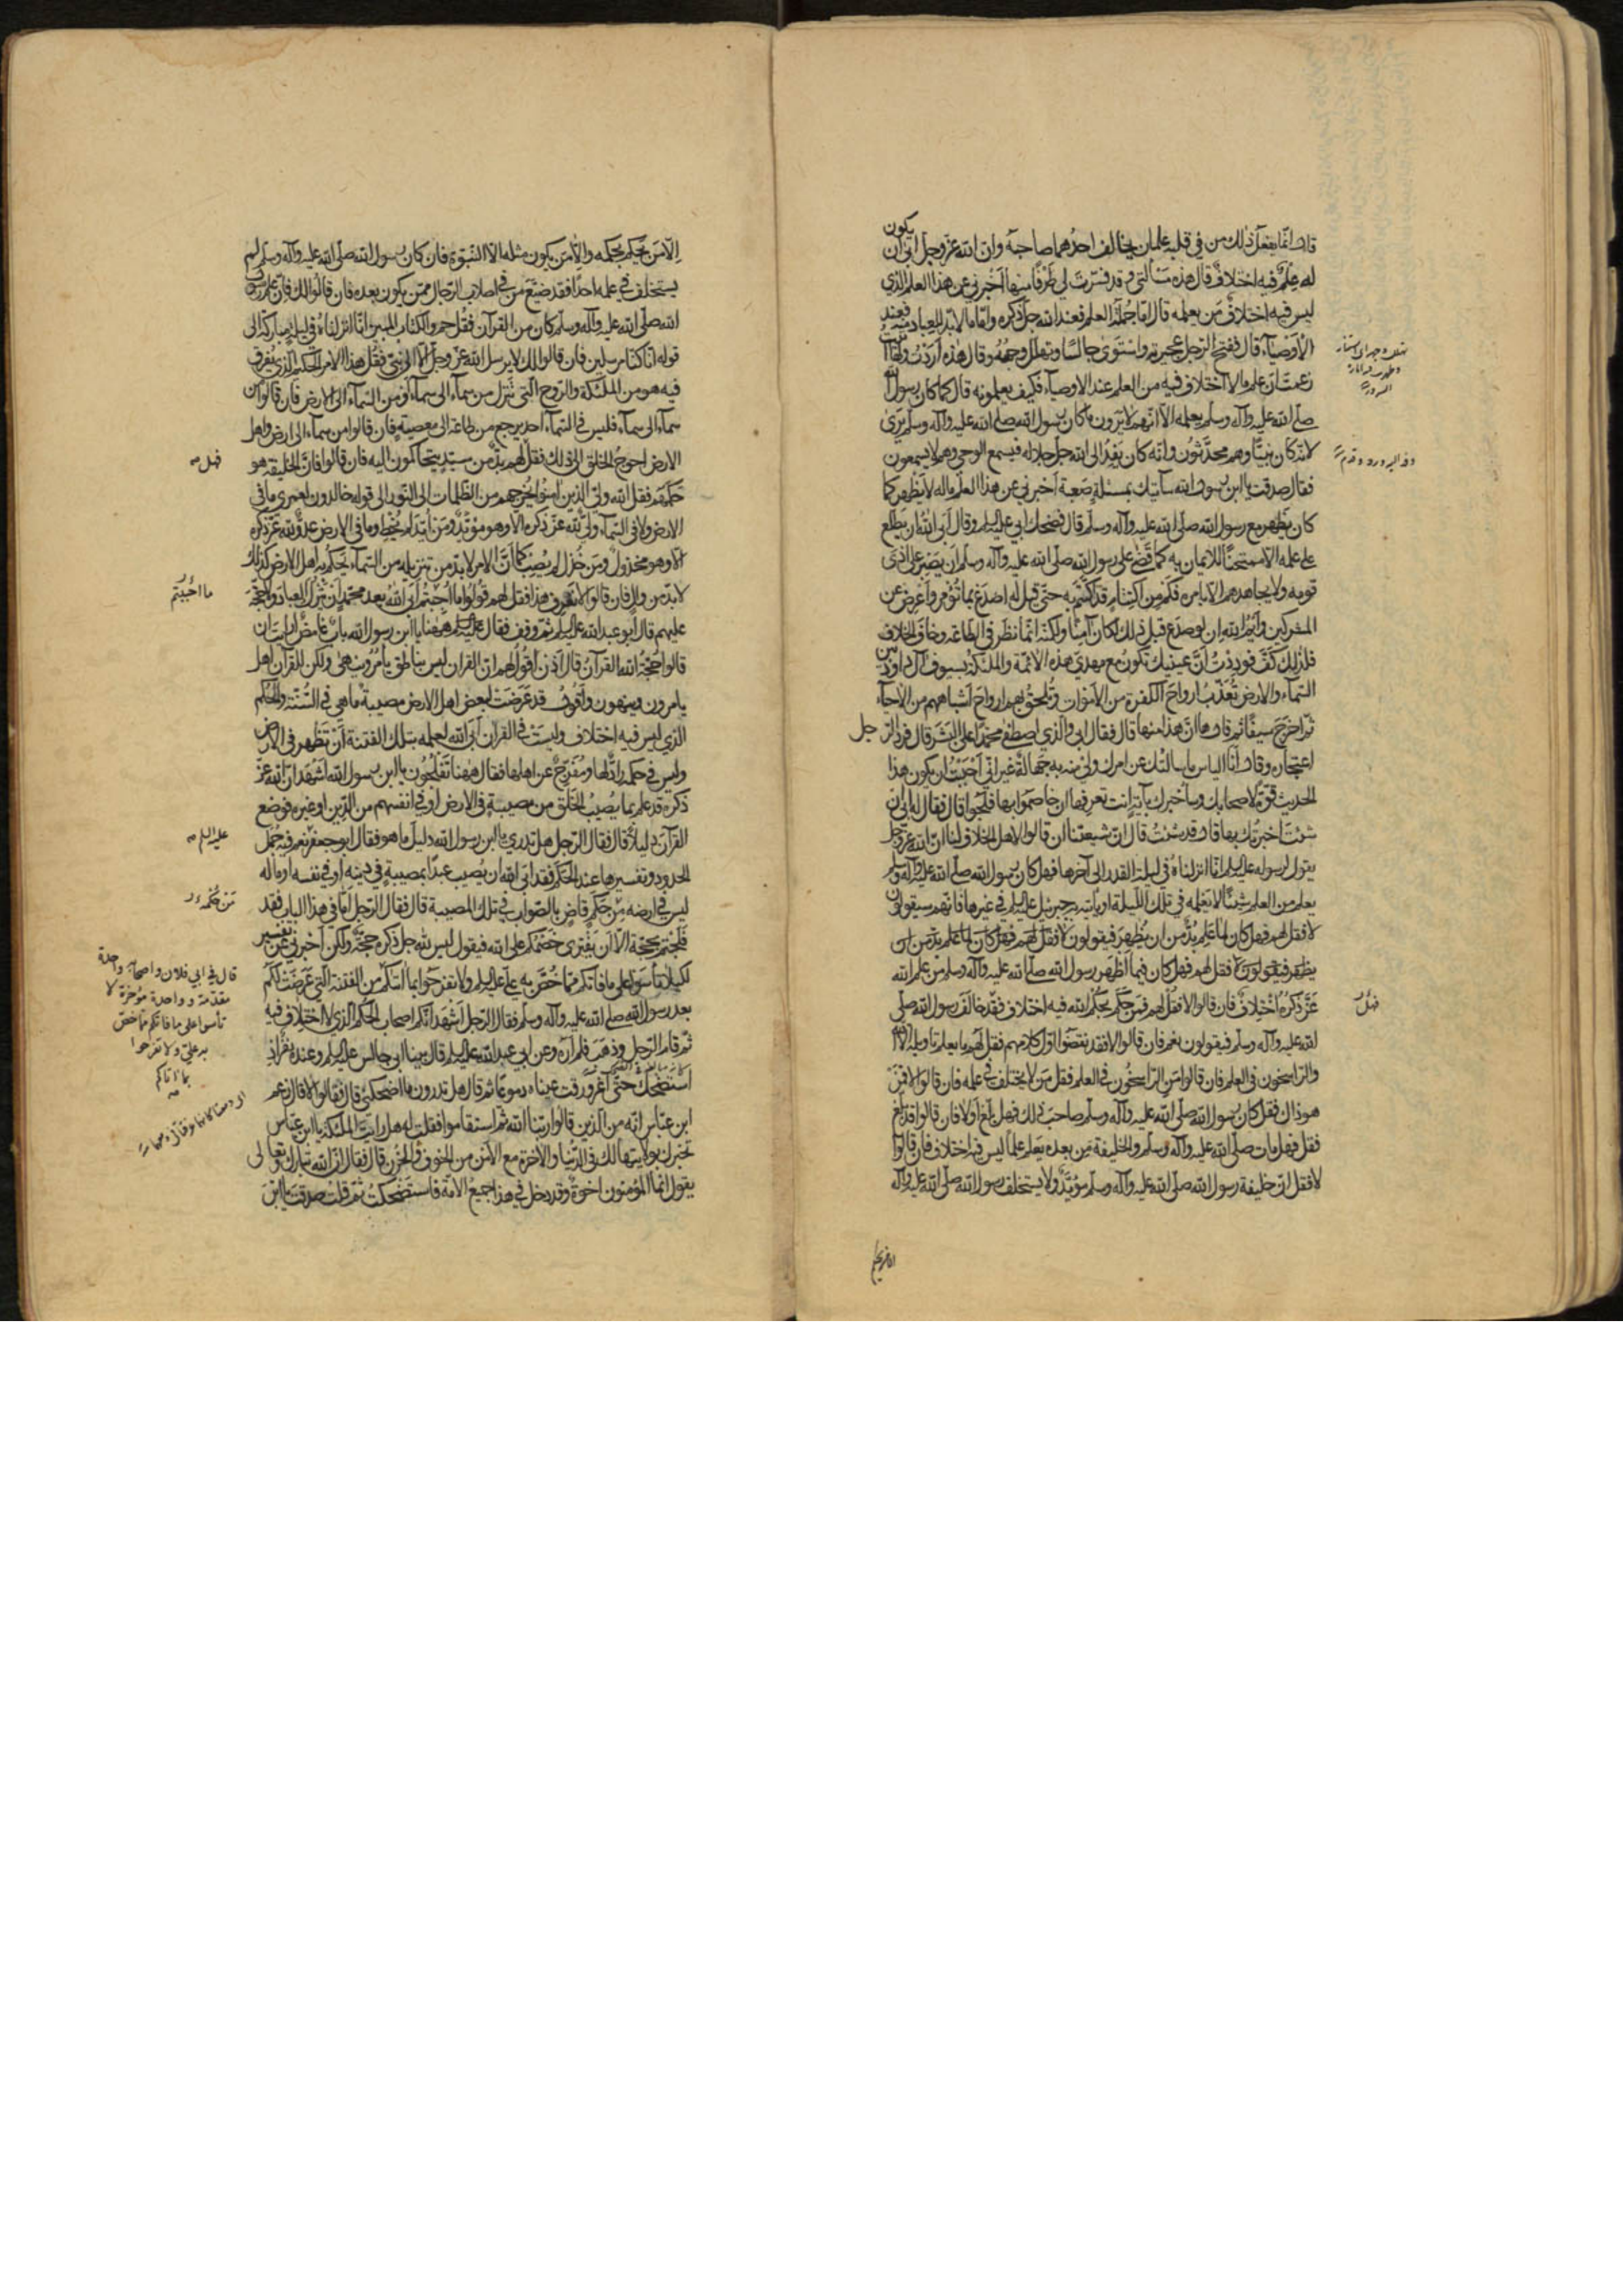 قال انّما يفعل ذلك من في قلبه علمان يخالف احدهما صاحبه وان الله عزّ وجلّ ابى ان يكون
له علم فيه اختلاف قال هذه مسألتي وقد فسّرت لي طرفا منها أخبرني عن هذا العلم الذي
ليس فيه اختلاف من يعلمه قال امّا جملة العلم فعند الله جلّ ذكره وامّا ما لا بدّ للعباد منه فعند
الأوصياء قال ففتح الرجل عجيرته واستوى جالسا وتهلّل وجهه وقال هذه أردت ولها أتيت
زعمت انّ علم ما لا اختلاف فيه من العلم عند الاوصياء فكيف يعلمونه قال كما كان رسول الله
صلّى الله عليه وآله وسلّم يعلمه الّا انّهم لا يرون ما كان رسول الله صلّى الله عليه وآله وسلّم يرى
لانّه كان نبيّا وهم محدّثون وانّه كان يفد الى الله جلّ جلاله فيسمع الوحي وهم لا يسمعون
فقال صدقت يا ابن رسول الله سآتيك بمسئلة صعبة أخبرني عن هذا العلم ماله لا يظهر كما
كان يظهر مع رسول الله صلّى الله عليه وآله وسلّم قال فضحك ابي عليه السلم وقال أبى الله ان يطلع
على علمه الّا ممتحنا للايمان به كما قضى على رسول الله صلّى الله عليه وآله وسلّم ان يصبر على اذى
قومه ولا يجاهدهم الّا بامره فكم من اكتتام قد اكتتم به حتّى قيل له اصدع بما تؤمر وأعرض عن
المشركين وأيم الله ان لو صدع قبل ذلك لكان آمنا ولكنّه انّما نظر في الطاعة وخاف الخلاف
فلذلك كفّ فوددت أنّ عينيك تكون مع مهديّ هذه الأمّة والملئكة بسيوف آل داود بين
السماء والارض تعذّب ارواح الكفرة من الأموات وتلحق بهم ارواح أشباههم من الأحياء
ثمّ اخرج سيفا ثمّ قال ها انّ هذا منها قال فقال ابي والذي اصطفى محمّدا على البشر قال فردّ الرجل
اعتجاره وقال أنا الياس ما سألتك عن امرك ولي منه به جهالة غير انّي أحببت ان يكون هذا
الحديث قوّة لاصحابك وسأخبرك بآية انت تعرفها ان خاصموا بها فلجوا قال فقال له ابي ان
شئت اخبرتك بها قال قد شئت قال انّ شيعتنا ان قالوا لأهل الخلاف لنا انّ الله عزّ وجلّ
يقول لرسوله عليه السلم انّا انزلناه في ليلة القدر الى آخرها فهل كان رسول الله صلّى الله عليه وآله وسلم
يعلم من العلم شيئا لا يعلمه في تلك الليلة او يأتيه به جبرئيل عليه السلم في غيرها فانّهم سيقولون
لا فقل لهم فهل كان لما علم بدّ من ان يظهر فيقولون لا فقل لهم فهل كان
يظهر فيقولون لا فقل لهم فهل كان فيما أظهر رسول الله صلّى الله عليه وآله وسلم من علم الله
عزّ ذكره اختلاف فان قالوا لا فقل لهم فمن حكم بحكم الله فيه اختلاف فقد خالف رسول الله صلّى
الله عليه وآله وسلّم فيقولون نعم فان قالوا لا فقد نقضوا اوّل كلامهم فقل لهم ما يعلم تأويله الّا الله
والراسخون في العلم فان قالوا من الراسخون في العلم فقل من لا يختلف في علمه فان قالوا فمن
هو ذاك فقل كان رسول الله صلّى الله عليه وآله وسلّم صاحب ذلك فهل بلّغ أو لا فان قالوا قد بلّغ
فقل فهل مات صلّى الله عليه وآله وسلّم والخليفة من بعده يعلم علما ليس فيه اختلاف فان قالوا
لا فقل انّ خليفة رسول الله صلّى الله عليه وآله وسلّم مؤيّد ولا يستخلف رسول الله صلّى الله عليه وآله
الّا من يحكم
الّا من يحكم بحكمه والّا من يكون مثله الّا النبوّة فان كان رسول الله صلّى الله عليه وآله وسلّم لم
يستخلف في علمه احدا فقد ضيّع من في اصلاب الرجال ممّن يكون بعده فان قالوا لك فانّ علم رسول
الله صلّى الله عليه وآله وسلّم كان من القرآن فقل حم والكتاب المبين انّا انزلناه في ليلة مباركة الى
قوله انّا كنّا مرسلين فان قالوا لك لا يرسل الله عزّ وجلّ الّا الى نبيّ فقل هذا الامر الحكيم الذي يفرق
فيه هو من الملئكة والروح التي تنزل من سماء الى سماء أو من السماء الى الارض فان قالوا من
سماء الى سماء فليس في السماء أحد يرجع من طاعة الى معصية فان قالوا من سماء الى ارض واهل
الارض احوج الخلق الى ذلك فقل لهم بدّ من سيّد يتحاكمون اليه فان قالوا فانّ الخليفة هو
حكمهم فقل الله وليّ الذين آمنوا يخرجهم من الظلمات الى النور الى قوله خالدون لعمري ما في
الارض ولا في السماء وليّ لله عزّ ذكره الّا وهو مؤيّد ومن أيّد لم يخط وما في الارض عدوّ لله عزّ ذكره
الّا وهو مخذول ومن خذل لم يصب كما أنّ الامر لا بدّ من تنزيله من السماء يحكم به اهل الارض كذلك
لا بدّ من وال فان قالوا لا نعرف هذا فقل لهم قولوا ما احببتم أبى الله بعد محمّد أن يترك العباد ولا حجّة
عليهم قال ابو عبد الله عليه السلم ثمّ وقف فقال ههنا يا ابن رسول الله باب غامض أرأيت ان
قالوا حجّة الله القرآن قال اذن أقول لهم انّ القرآن ليس بناطق يأمر وينهى ولكن للقرآن اهل
يامرون وينهون وأقول قد عرضت لبعض اهل الارض مصيبة ما هي في السنّة والحكم
الذي ليس فيه اختلاف وليست في القرآن أبى الله لعلمه بتلك الفتنة أن تظهر في الارض
وليس في حكمه رادّ لها ومفرّج عن اهلها فقال ههنا تفلجون يا ابن رسول الله اشهد انّ الله عزّ
ذكره قد علم بما يصيب الخلق من مصيبة في الارض او في انفسهم من الدين او غيره فوضع
القرآن دليلا قال فقال الرجل هل تدري يا ابن رسول الله دليل ما هو فقال ابو جعفر نعم فيه جمل
الحدود وتفسيرها عند الحكم فقد ابى الله ان يصيب عبدا بمصيبة في دينه او في نفسه او ماله
ليس في ارضه من حكم قاض بالصواب في تلك المصيبة قال فقال الرجل امّا في هذا الباب فقد
فلجتم بحجّة الّا أن يفتري خصمكم على الله فيقول ليس لله جلّ ذكره حجّة ولكن أخبرني عن تفسير
لكيلا تأسوا على ما فاتكم ممّا خصّ به علي عليه السلم ولا تفرحوا بما اتيكم من الفتنة التي عرضت لكم
بعد رسول الله صلّى الله عليه وآله وسلّم فقال الرجل أشهد انّكم اصحاب الحكم الذي لا اختلاف فيه
ثمّ قام الرجل وذهب فلم أره وعن ابي عبد الله عليه السلم قال بينا ابي جالس عليه السلم وعنده نفر اذ
استضحك حتّى اغرورقت عيناه دموعا ثمّ قال هل تدرون ما اضحكني قال فقالوا لا قال زعم
ابن عبّاس انّه من الذين قالوا ربّنا الله ثمّ استقاموا فقلت له هل رايت الملئكة يا ابن عبّاس
تخبرك بولايتها لك في الدنيا والآخرة مع الأمن من الخوف والحزن قال فقال انّ الله تبارك وتعالى
يقول انّما المؤمنون اخوة وقد دخل في هذا جميع الامّة فاستضحكت ثمّ قلت صدقت يا ابن
فهل
ما احببتم
عليه السلم
من حكمه
قال في ابي فلان واصحابه واحدة
مقدّمة وواحدة مؤخرة لا
تأسوا على ما فاتكم ممّا خصّ
به عليّ ولا تفرحوا
بما اتاكم